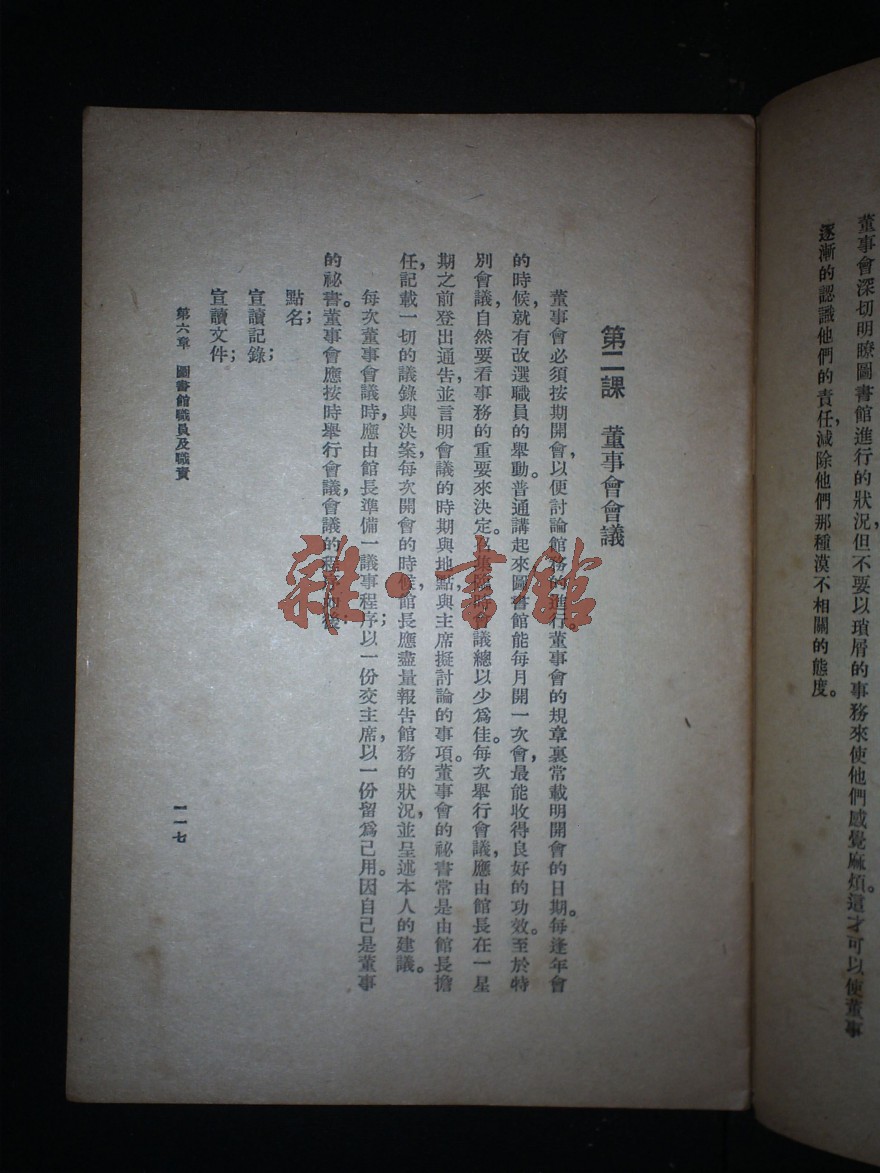 董事會深切明瞭圖書館進行的狀況，但不要以瑣屑的事務來使他們感覺麻煩。這才可以使董事
逐漸的認識他們的責任，減除他們那種漠不相關的態度。
第二課　董事會會議
董事會必須按期開會，以便討論館務的進行。董事會的規章裏常載明開會的日期。每逢年會
的時候，就有改選職員的舉動。普通講起來，圖書館能每月開一次會，最能收得良好的功效。至於特
別會議，自然要看事務的重要來決定。召集臨時會議總以少爲佳。每次舉行會議，應由館長在一星
期之前登出通告，並言明會議的時期與地點，與主席擬討論的事項。董事會的祕書常是由館長擔
任，記載一切的議錄與決案，每次開會的時候，館長應盡量報告館務的狀況，並呈述本人的建議。
每次董事會議時，應由館長準備一議事程序；以一份交主席，以一份留爲己用。因自己是董事
的祕書。董事會應按時舉行會議，會議的程序
點名；
宣讀記錄；
宣讀文件；
第六章　圖書館職員及職責
一一七
雜·書館